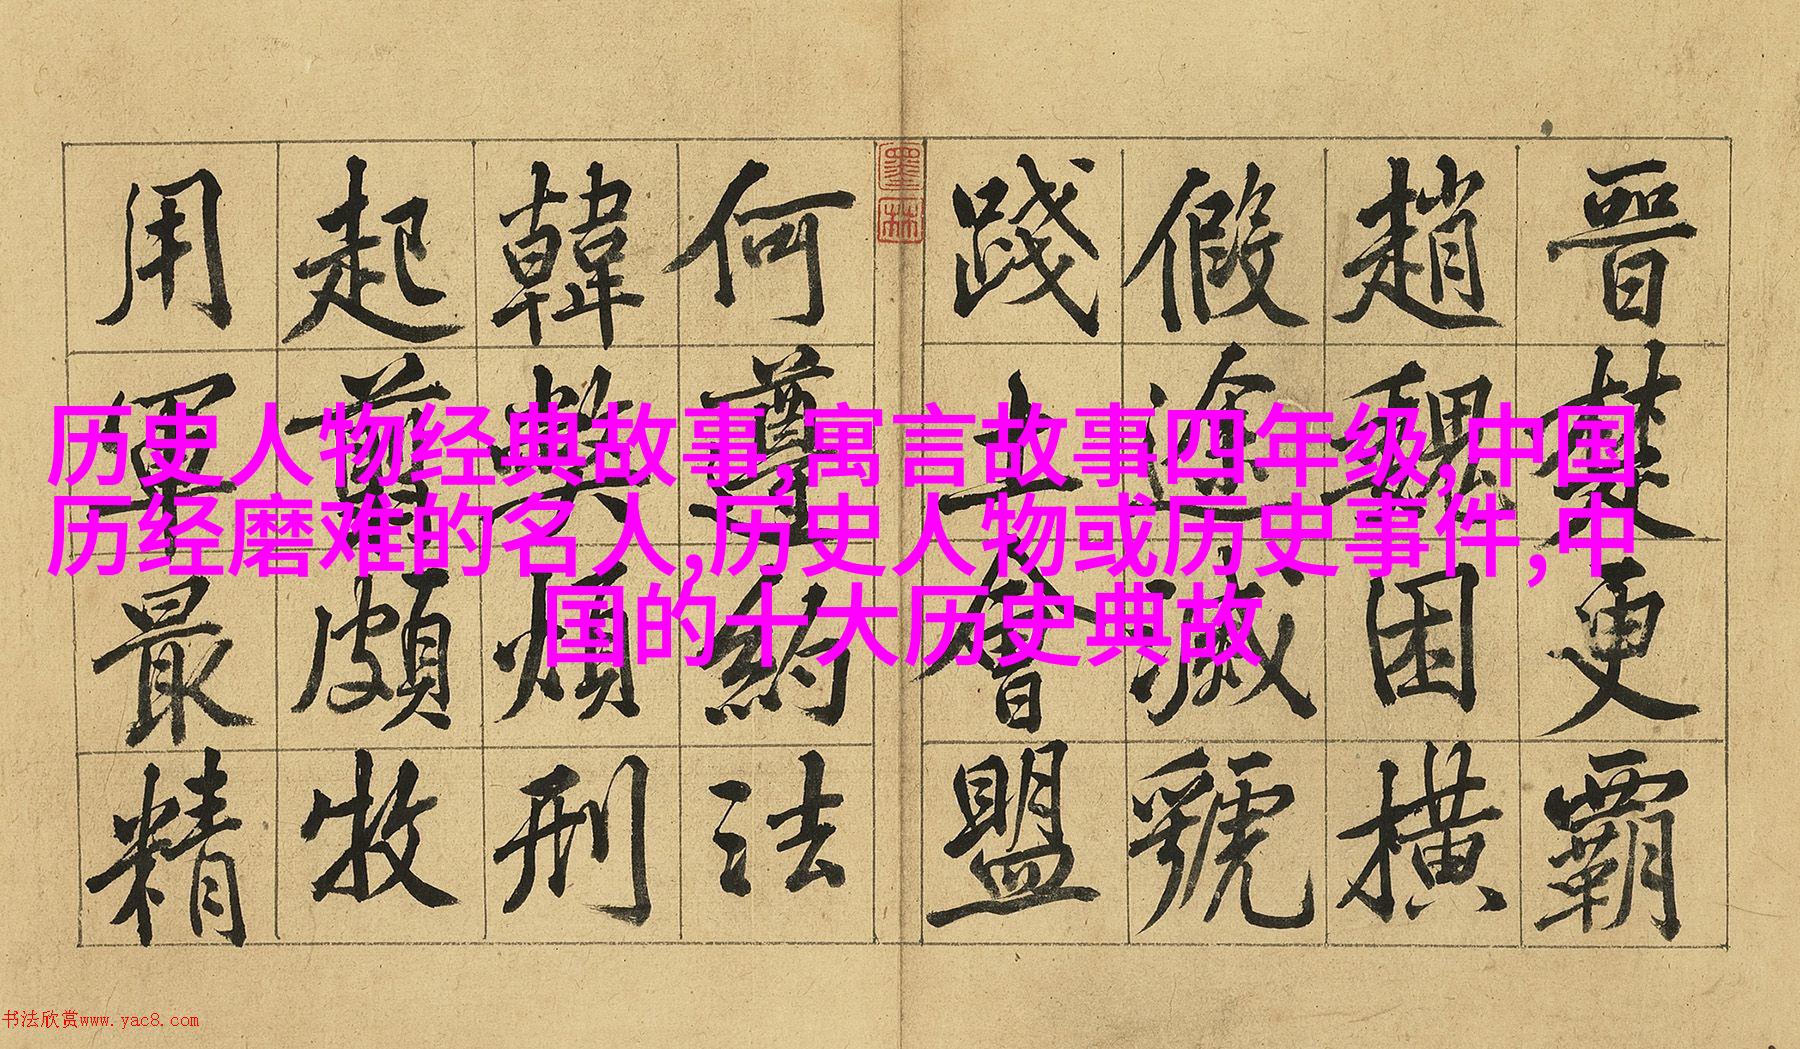 晋楚更霸
趙魏困橫
假途滅虢
踐土會盟
何遵約法
韓弊煩刑
起翦頗牧
用軍最精
墨林
历史人物经典故事,寓言故事四年级,中国
历经磨难的名人,历史人物或历史事件,中
国的十大历史典故
书法欣赏www.yac8.com